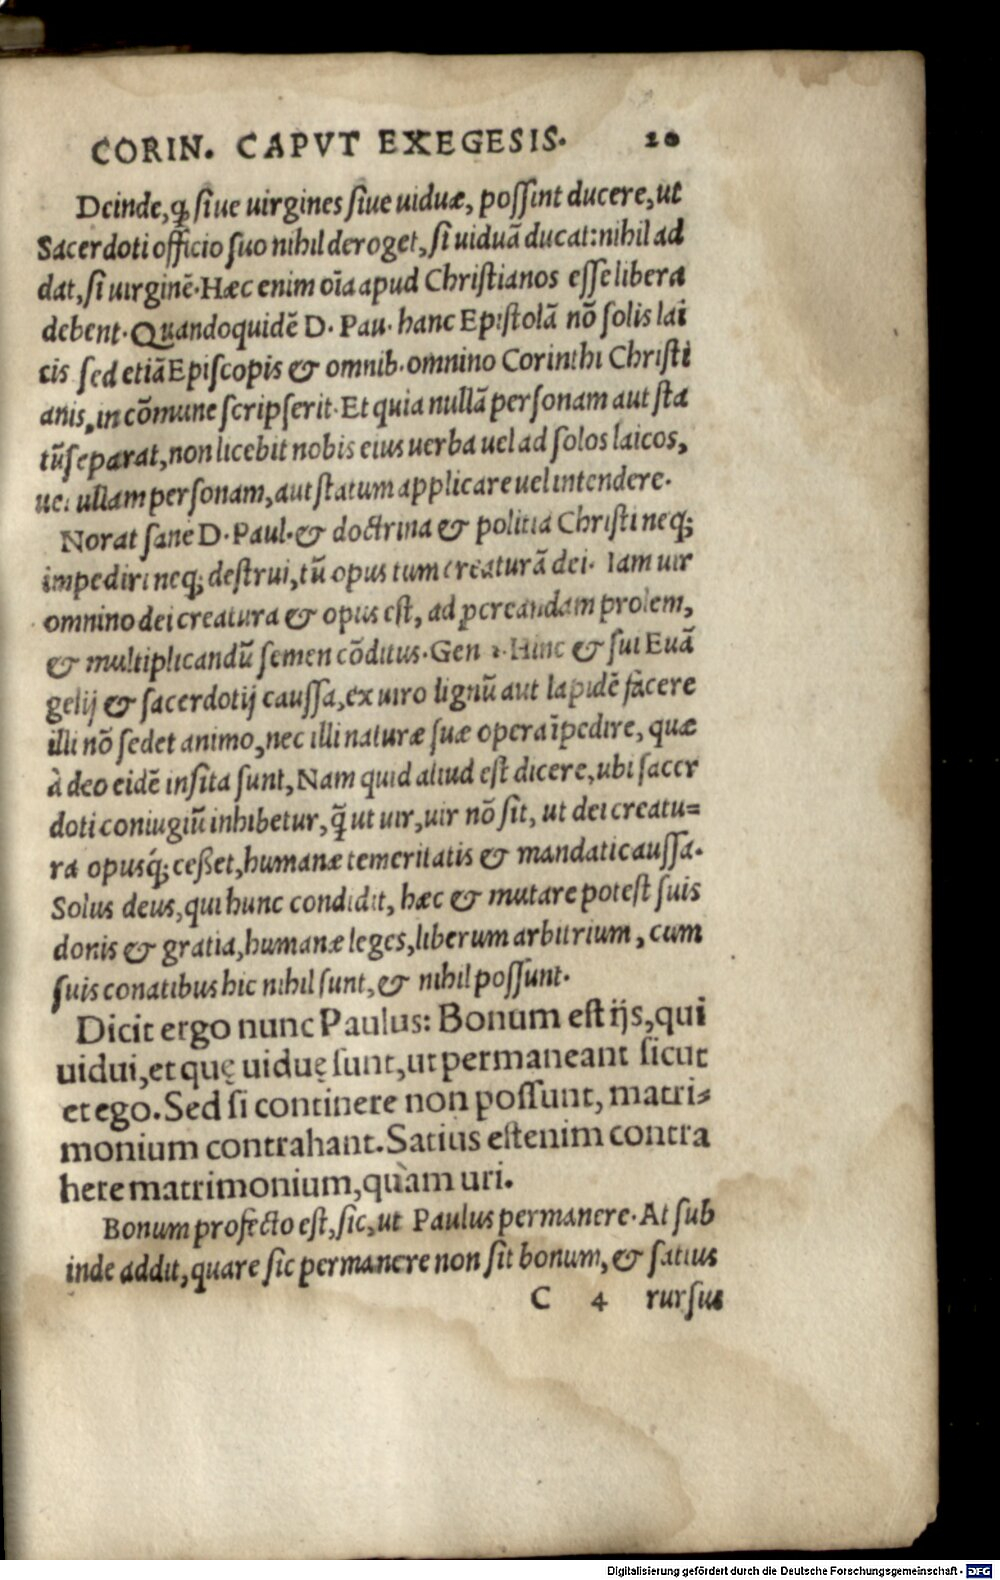 CORIN. CAPVT EXEGESIS. 20
Deinde, ꝙ siue uirgines siue uiduæ, possint ducere, ut
Sacerdoti officio suo nihil deroget, si uiduã ducat: nihil ad
dat, si uirginẽ. Hæc enim oĩa apud Christianos esse libera
debent. Quandoquidẽ D. Pau. hanc Epistolã nõ solis lai
cis sed etiã Episcopis & omnib. omnino Corinthi Christi
anis, in cõmune scripserit. Et quia nullã personam aut sta
tũ separat, non licebit nobis eius uerba uel ad solos laicos,
uel ullam personam, aut statum applicare uel intendere.
Norat sane D. Paul. & doctrina & politia Christi neq;
impediri neq; destrui, tũ opus tum creaturã dei. Iam uir
omnino dei creatura & opus est, ad ꝓcreandam prolem,
& multiplicandũ semen cõditus. Gen 1. Hinc & sui Euã
gelij & sacerdotij caussa, ex uiro lignũ aut lapidẽ facere
illi nõ sedet animo, nec illi naturæ suæ opera ĩpedire, quæ
à deo eidẽ insita sunt, Nam quid aliud est dicere, ubi sacer
doti coniugiũ inhibetur, q̃ ut uir, uir nõ sit, ut dei creatu=
ra opusq́; ceßet, humanæ temeritatis & mandati caussa.
Solus deus, qui hunc condidit, hæc & mutare potest suis
donis & gratia, humanæ leges, liberum arbitrium, cum
suis conatibus hic nihil sunt, & nihil possunt.
Dicit ergo nunc Paulus: Bonum est ijs, qui
uidui, et quę uiduę sunt, ut permaneant sicut
et ego. Sed si continere non possunt, matri=
monium contrahant. Satius est enim contra
here matrimonium, quàm uri.
Bonum profecto est, sic, ut Paulus permanere. At sub
inde addit, quare sic permanere non sit bonum, & satius
C 4 rursus
Digitalisierung gefördert durch die Deutsche Forschungsgemeinschaft - DFG